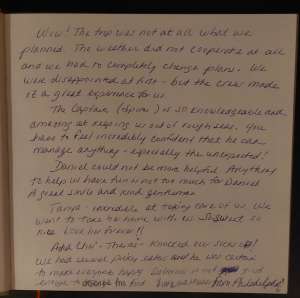 Wow! The trip was not at all what we
planned. The weather did not cooperate at all
and we had to completely change plans. We
were disappointed at first - but the crew made
it a great experience for us.
The Captain is so knowledgeable and
amazing at keeping us out of rough seas. You
have to feel incredibly confident that he can
manage anything - especially the unexpected!
Daniel could not be more helpful. Anything
to help us have fun is not too much for Daniel.
A great smile and kind gentleman.
Tanya - incredible at taking care of us. We
want to take her home with us so
nice. Love her forever!!
And Chef - knocked our socks off!
We had several picky eaters and he was certain
to make everyone happy.
from Philadelphia!